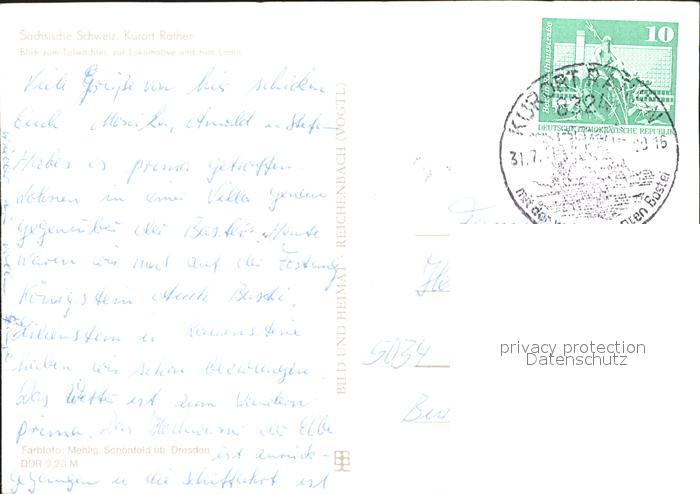 Sächsische Schweiz. Kurort Rathen
Blick zum Talwächter, zur Lokomotive und zum Lamm
Viele Grüße von hier schicken
Euch Monika, Arnold u. Stefan
Haben es prima getroffen.
Wohnen in einer Villa genau
gegenüber der Bastei. Heute
waren wir mal auf der Festung
Königstein. Auch Bastei,
Lilienstein u.
haben wir schon bezwungen.
Das Wetter ist zum Wandern
prima. Das Hochwasser der Elbe
ist zurück-
gegangen u. die Schiffahrt ist
Farbfoto: Mehlig, Schönfeld üb. Dresden
DDR 0,20 M
BILD UND HEIMAT REICHENBACH (VOGTL)
10
DEUTSCHE DEMOKRATISCHE REPUBLIK
KURORT RATHEN
8324
31.7.
16
mit der
Bastei
5034
privacy protection
Datenschutz